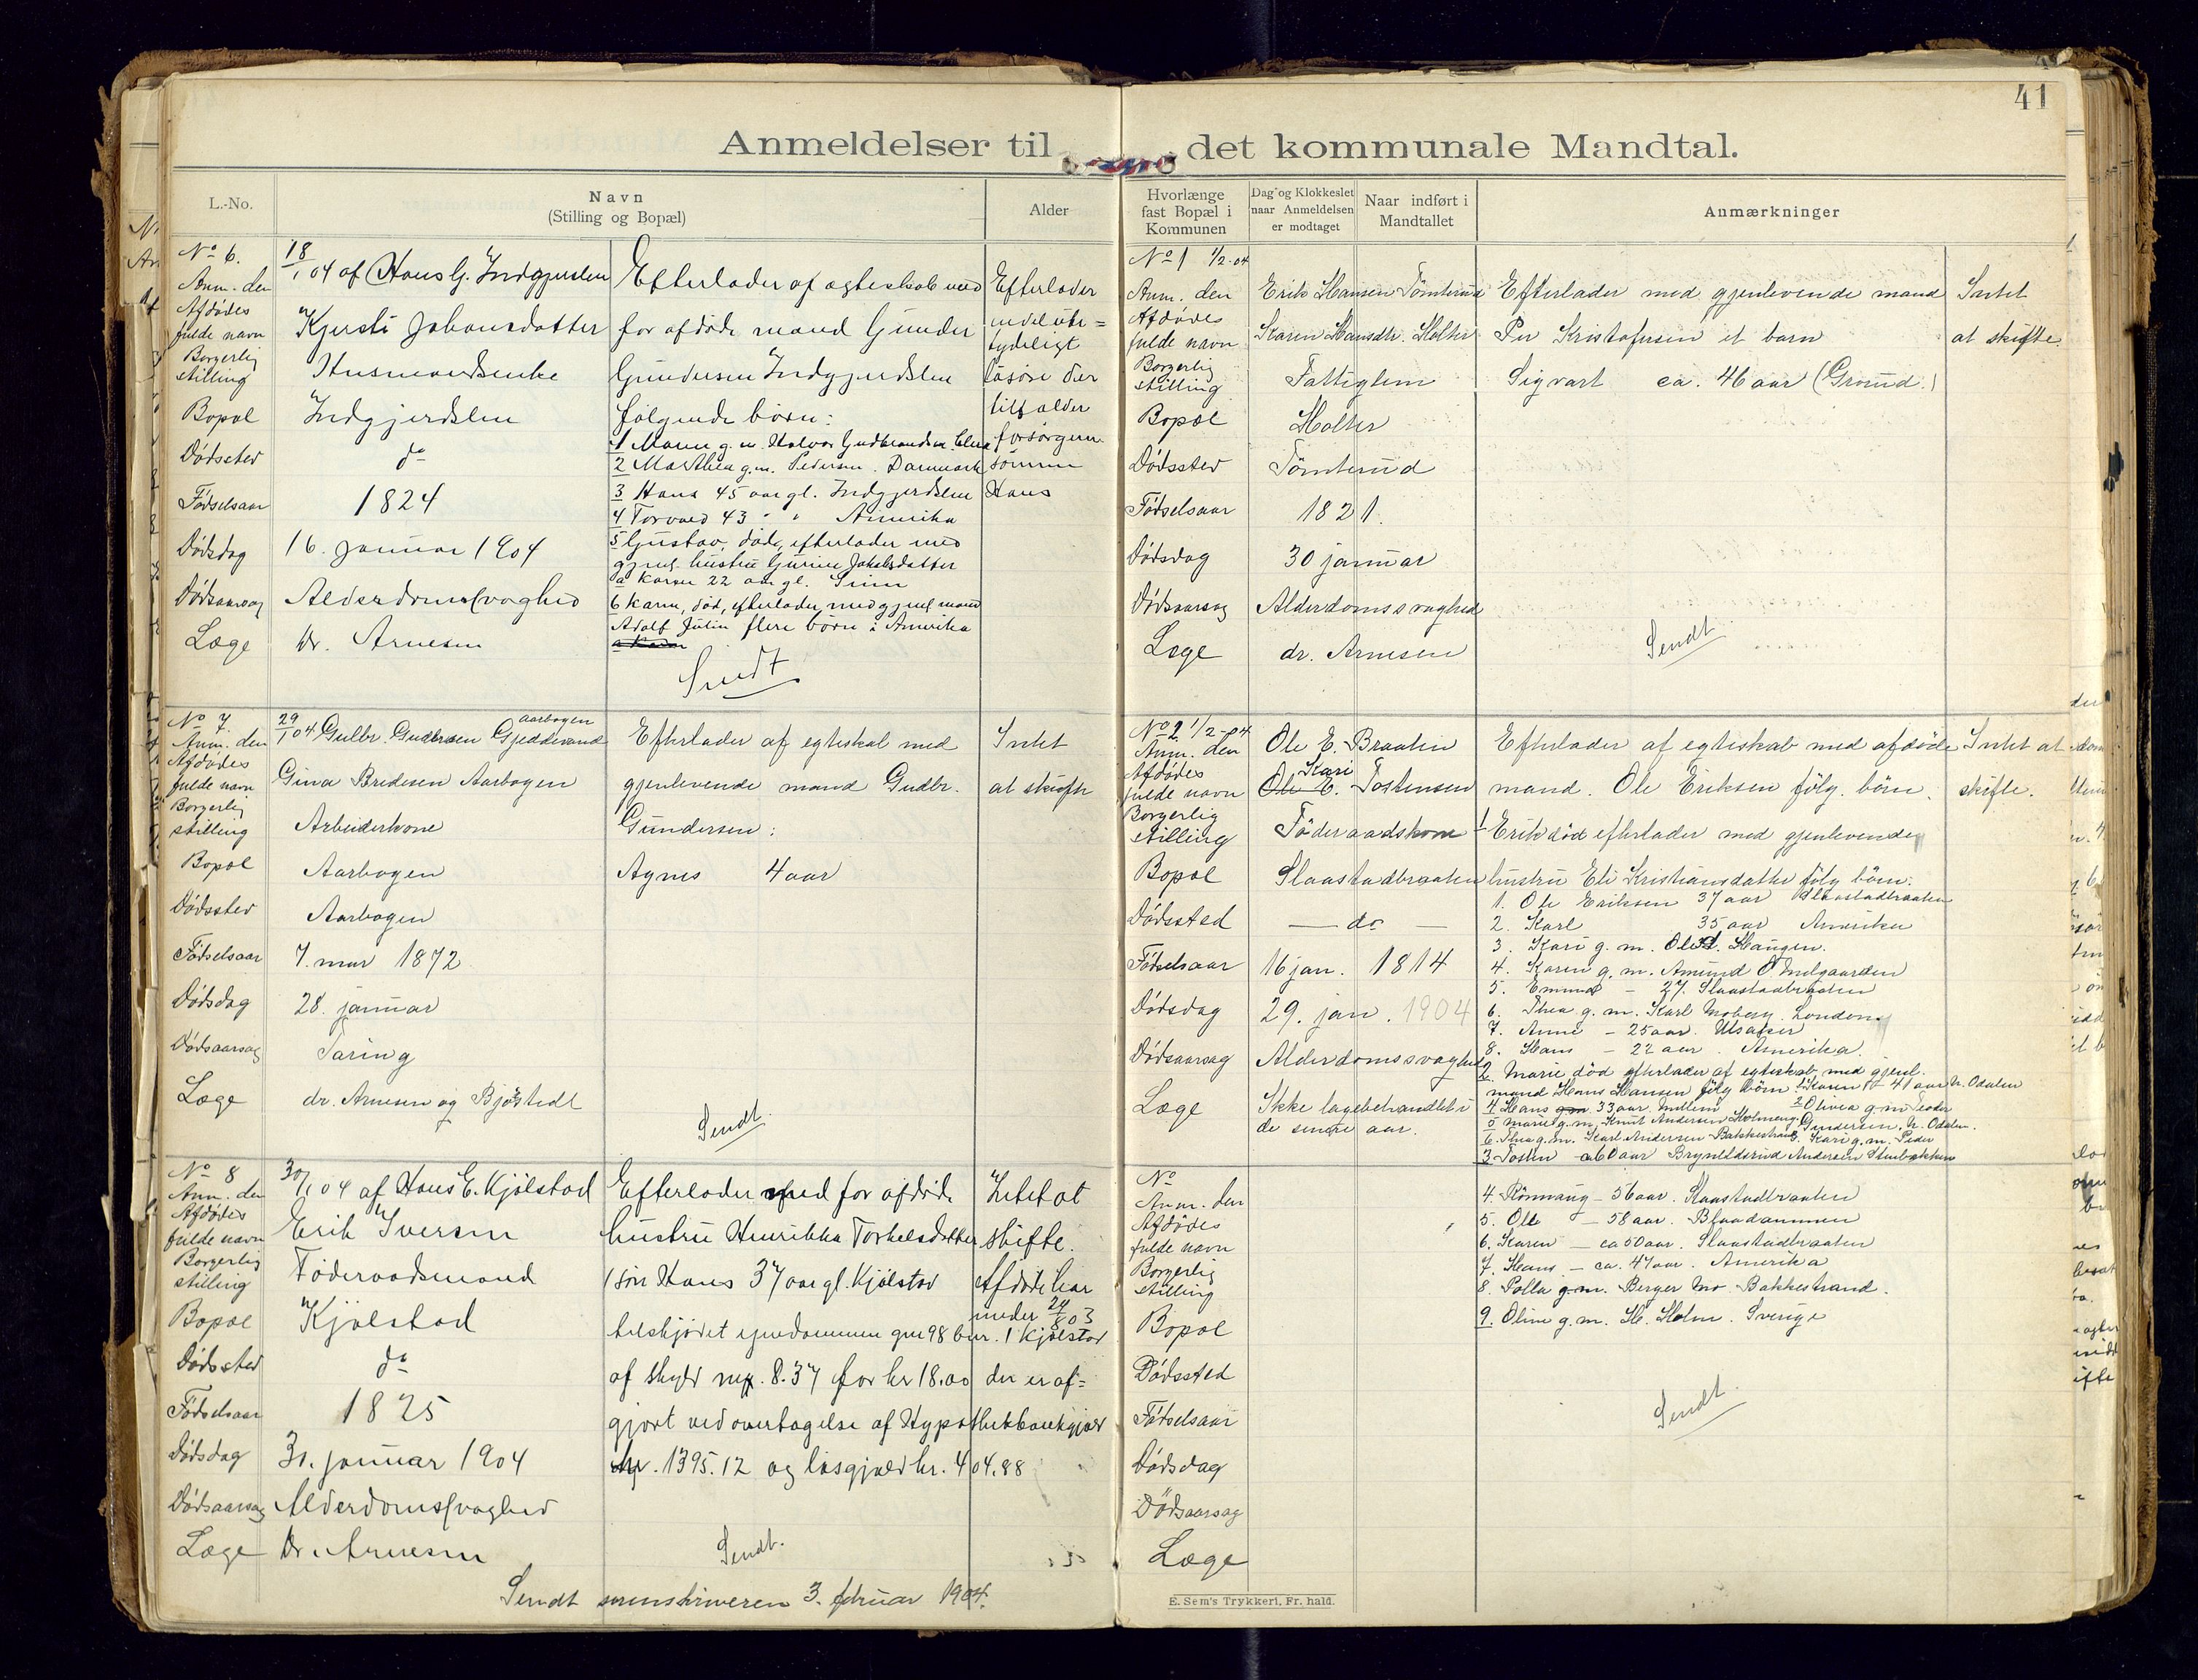 41
Anmeldelser til det kommunale Mandtal.
L.-No.
Navn
(Stilling og Bopæl)
Alder
Hvorlænge
fast Bopæl i
Kommunen
Dag og Klokkeslet
naar Anmeldelsen
er modtaget
Naar indført i
Mandtallet
Anmærkninger
No 6.
Anm. den 18/1 04 af Hans G. Indgjerdslen
Afdødes
fulde navn Kjersti Johansdatter
Borgerlig
stilling Husmandsenke
Bopæl Indgjerdslen
Dødssted do
Fødselsaar 1824
Dødsdag 16. januar 1904
Dødsaarsag Alderdomssvaghed
Læge Dr. Arnesen
Efterlader af ægteskab med
før afdøde mand Gunder
Gundersen Indgjerdslen
følgende børn:
1 Maren g. m. Halvor Gudbrandsen
2 Marthea g.m. Pedersen. Danmark
3 Hans 45 aar gl. Indgjerdslen
4 Torvald 43 " " Amerika
5 Gustav, død, efterlader med
gjenl. hustru Gurine Jakobsdatter
a Karen 22 aar gl.
6 Karen, død, efterlader med gjenl mand
Adolf Julin flere børn i Amerika
Sendt
Efterlader
endel ube=
tydeligt
løsøre der
tilfalder
forsørgeren
sønnen
Hans
No 7.
Anm. den 29/1 04 Gulbr. Gundersen Gjeddevand Aarbogen
Afdødes
fulde navn Gina Bredesen Aarbogen
Borgerlig
stilling Arbeiderkone
Bopæl Aarbogen
Dødssted Aarbogen
Fødselsaar 7. mar 1872
Dødsdag 28. januar
Dødsaarsag Tæring
Læge dr. Arnesen og Bjørstedt
Efterlader af egteskab med
gjenlevende mand Gudbr.
Gundersen:
Agnes 4 aar
Sendt
Intet
at skifte
No 8
Anm. den 30/1 04 af Hans E. Kjølstad
Afdødes
fulde navn Erik Iversen
Borgerlig
stilling Føderaadsmand
Bopæl Kjølstad
Dødssted do
Fødselsaar 1825
Dødsdag 30. januar 1904
Dødsaarsag Alderdomssvaghed
Læge Dr. Arnesen
Efterlader med før afdøde
hustru Henrikka Torkelsdatter
1 søn Hans 37 aar gl. Kjølstad
Intet at
skifte.
Afdøde har
under 24/8 03
tilskjødet eiendommen gnr 98 bnr. 1 Kjølstad
af skyld mk. 8.37 for kr 18.00 der er af=
gjort ved overtagelse af Hypothekbankgjæld
kr. 1395.12 og løsgjæld kr. 404.88
Sendt.
Sendt sorenskriveren 3. februar 1904.
No 1 1/2-04
Anm. den Erik Hansen Tømterud
Afdødes
fulde navn Karen Hansdtr. Holter
Borgerlig
stilling Fattiglem
Bopæl Holter
Dødssted Tømterud
Fødselsaar 1821.
Dødsdag 30 januar
Dødsaarsag Alderdomssvaghed
Læge dr. Arnesen
Efterlader med gjenlevende mand
Per Kristofersen et barn
Sigvart ca. 46 aar (Grorud.)
Sendt.
Intet
at skifte.
No 2 1/2-04
Anm. den Ole E. Braaten
Afdødes
fulde navn Ole E. Kari Tostensen
Borgerlig
stilling Føderaadskone
Bopæl Slaastadbraaten
Dødssted — do —
Fødselsaar 16 jan. 1814
Dødsdag 29. jan. 1904
Dødsaarsag Alderdomssvaghed
Læge Ikke lægebehandlet i
de senere aar.
Efterlader af egteskab med afdøde
mand. Ole Eriksen følg. børn.
1 Erik død efterlader med gjenlevende
hustru Eli Kristiansdatter følg børn:
1. Ole Eriksen 37 aar Slaastadbraaten
2. Karl 35 aar Amerika
3. Kari g. m. Ole Haugen.
4. Karen g. m. Amund O. Melgaarden
5. Emma – 27. Slaastadbraaten
6. Thea g. m. Karl Moberg. London
7. Anne – 25 aar. Ulsaker
8. Hans – 22 aar. Amerika.
2. Marie død efterlader af egteskab med gjenl.
mand Hans Hansen følg børn 1 Karen – 41 aar N. Odalen
4 Hans 33 aar. Mellem 2 Olivea g m Teodor
5 Marie g. m. Knut Andersen Holmeng. Gundersen, N. Odalen.
6. Thea g. m. Karl Andersen Bakkestrand 3. Kari g. m. Peder
3 Tosten – 60 aar Brynildsrud Andersen Stenbakken
Intet at
skifte.
No
Anm. den
Afdødes
fulde navn
Borgerlig
stilling
Bopæl
Dødssted
Fødselsaar
Dødsdag
Dødsaarsag
Læge
4. Rønnaug – 56 aar. Slaastadbraaten
5. Ole – 58 aar. Blaadammen
6. Karen – ca 50 aar. Slaastadbraaten
7. Hans – ca. 47 aar. Amerika
8. Polla g. m. Berger Mo Bakkestrand.
9. Oline g. m. H. Holm. Sverige
Sendt.
E. Sem's Trykkeri, Fr.hald.